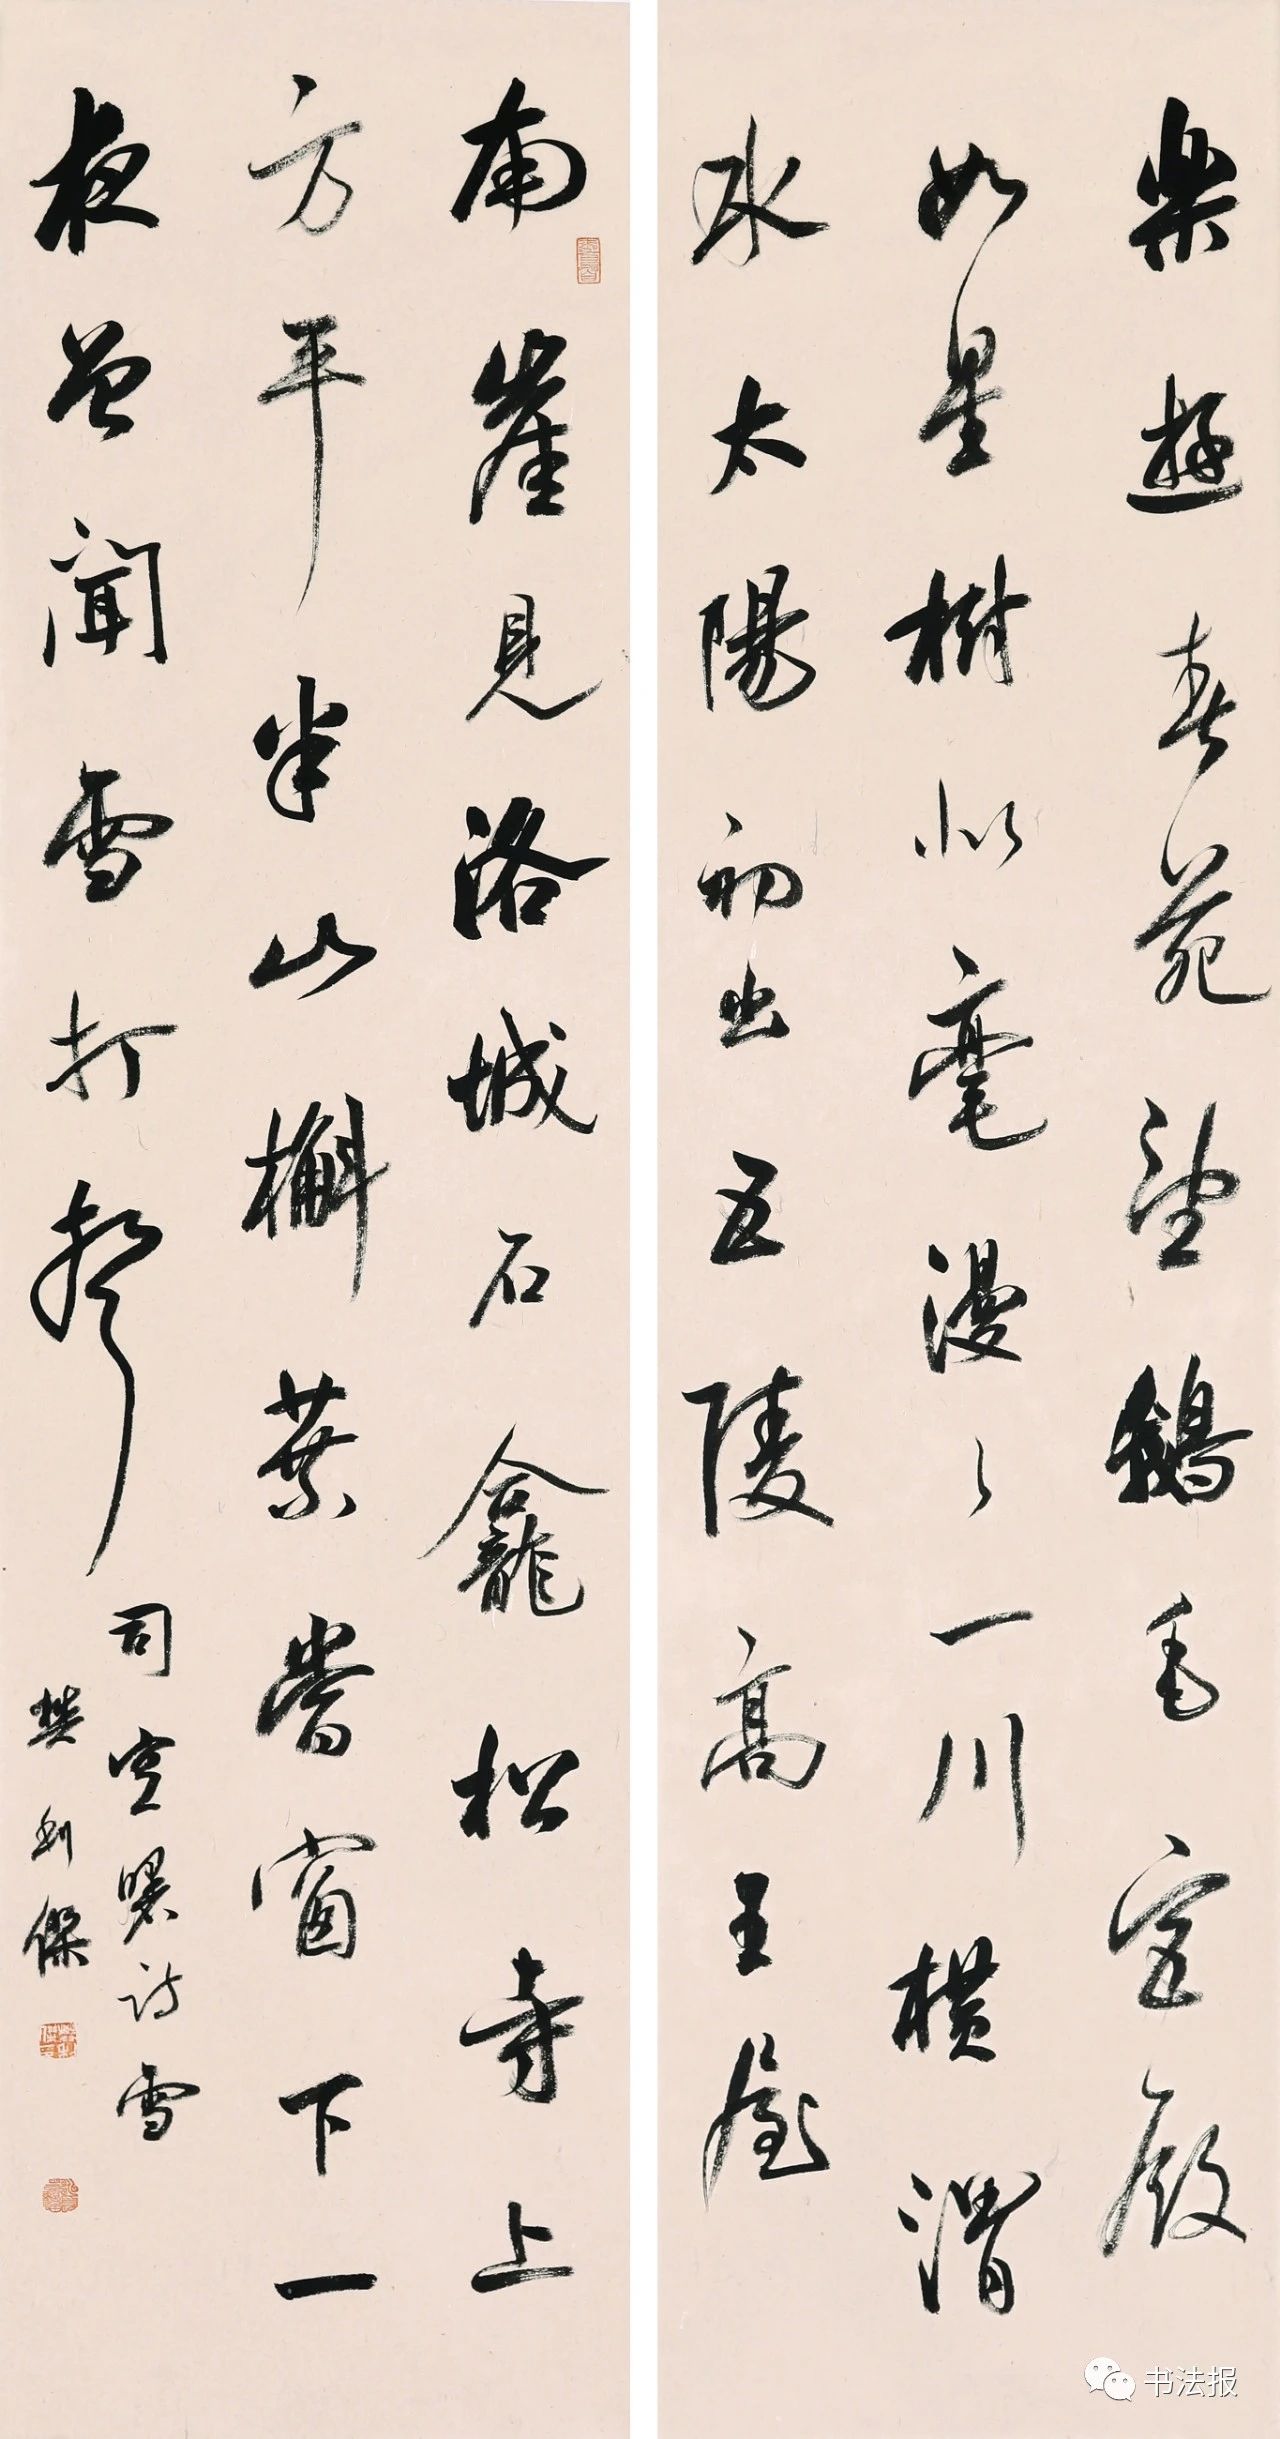 樂遊春苑望鵝毛宮殿
如星樹似毫漫々一川橫渭
水太陽初出五陵高王屋
南崖見洛城石龕松寺上
方平半山槲葉當窗下一
夜曾聞雪打聲
司空曙詩雪
樊利傑
书法报